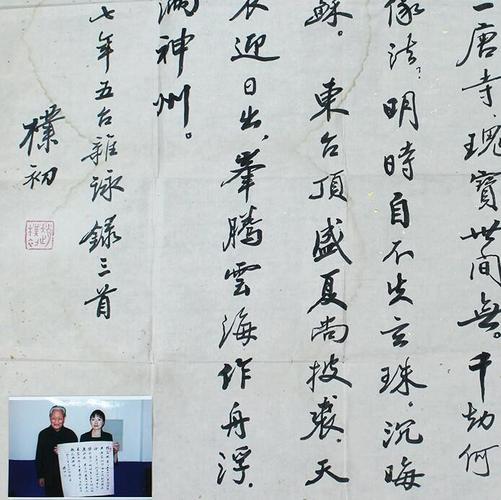 一唐寺，瑰寶世間無。千劫何
像法？明時自不失玄珠，沉晦
蘇。　東台頂，盛夏尚披裘。天
衣迎日出，峯騰雲海作舟浮。
滿神州。
七年五台雜詠錄三首
樸初